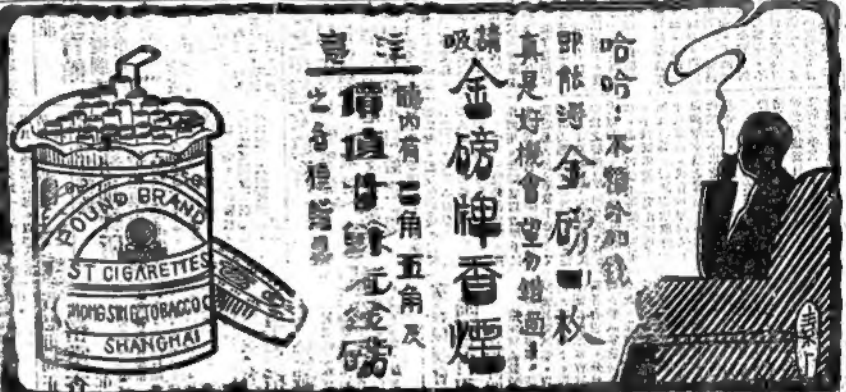 哈哈！不額外加錢
即能得金磅一枚
真是好機會 望勿錯過！
請吸
金磅牌香煙
注意
聽內有二角五角及
價值廿餘元金磅
之各種贈品
POUND BRAND
ST CIGARETTES
TOBACCO C
SHANGHAI